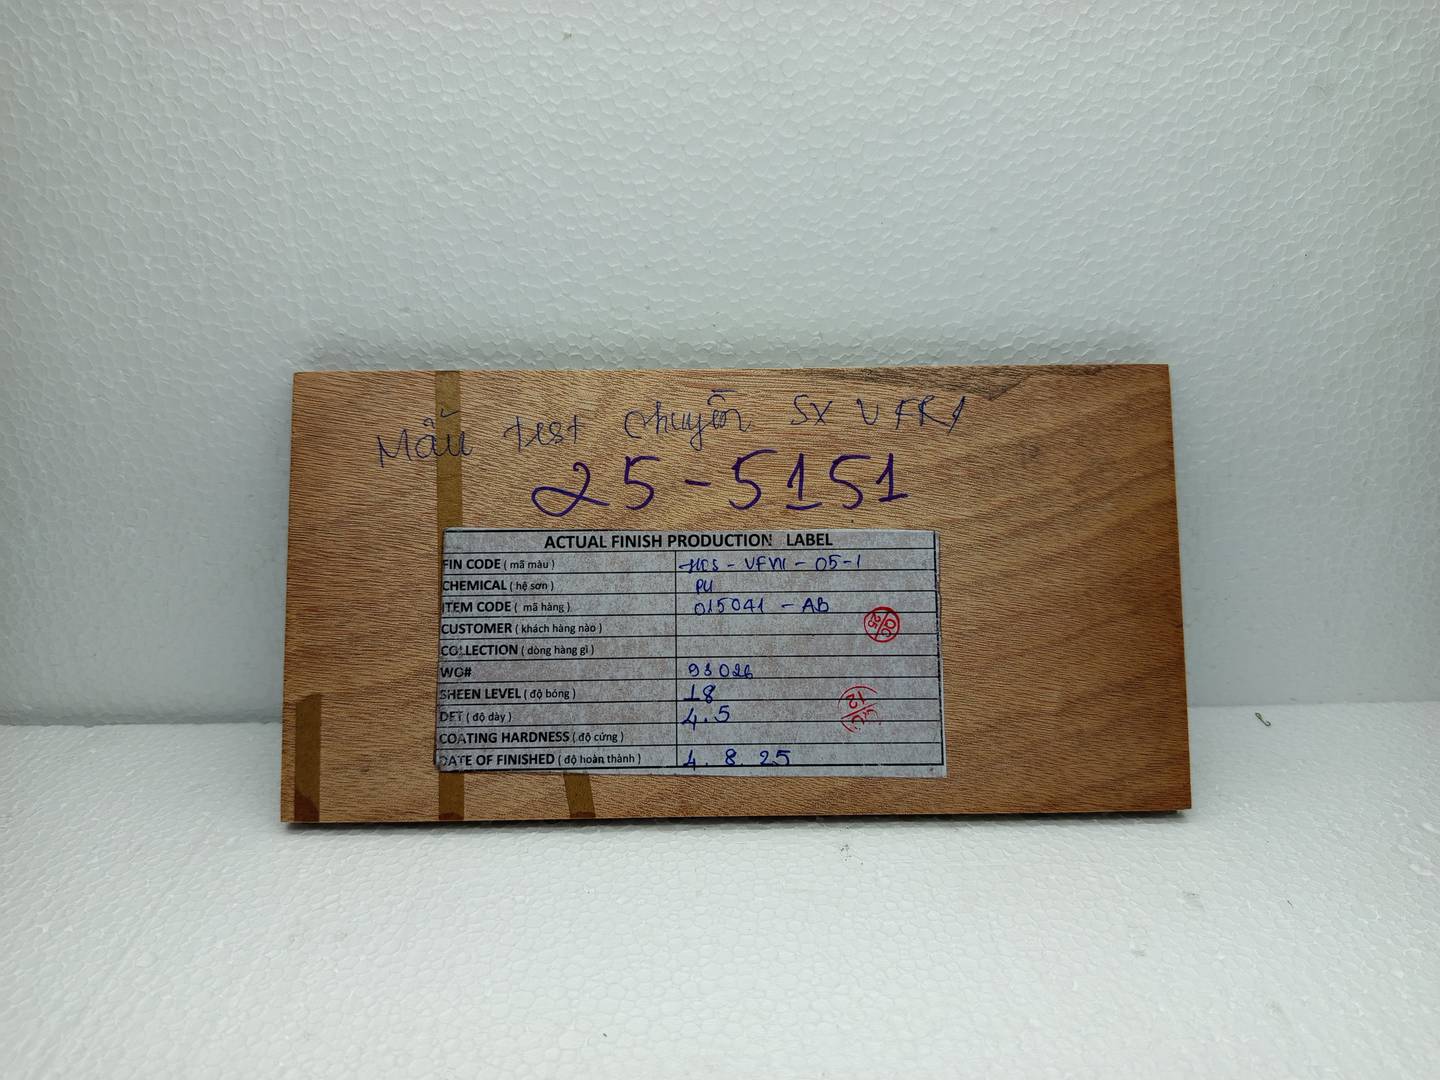 Mẫu test chuyền SX VFR1
25-5151
ACTUAL FINISH PRODUCTION LABEL
FIN CODE ( mã màu ) HCS - VFN1 - 05-1
CHEMICAL ( hệ sơn ) PU
ITEM CODE ( mã hàng ) 015041 - AB
CUSTOMER ( khách hàng nào )
QC 25
COLLECTION ( dòng hàng gì )
WO# 93026
SHEEN LEVEL ( độ bóng ) 18
12
DFT ( độ dày ) 4.5
COATING HARDNESS ( độ cứng )
DATE OF FINISHED ( độ hoàn thành ) 4. 8. 25